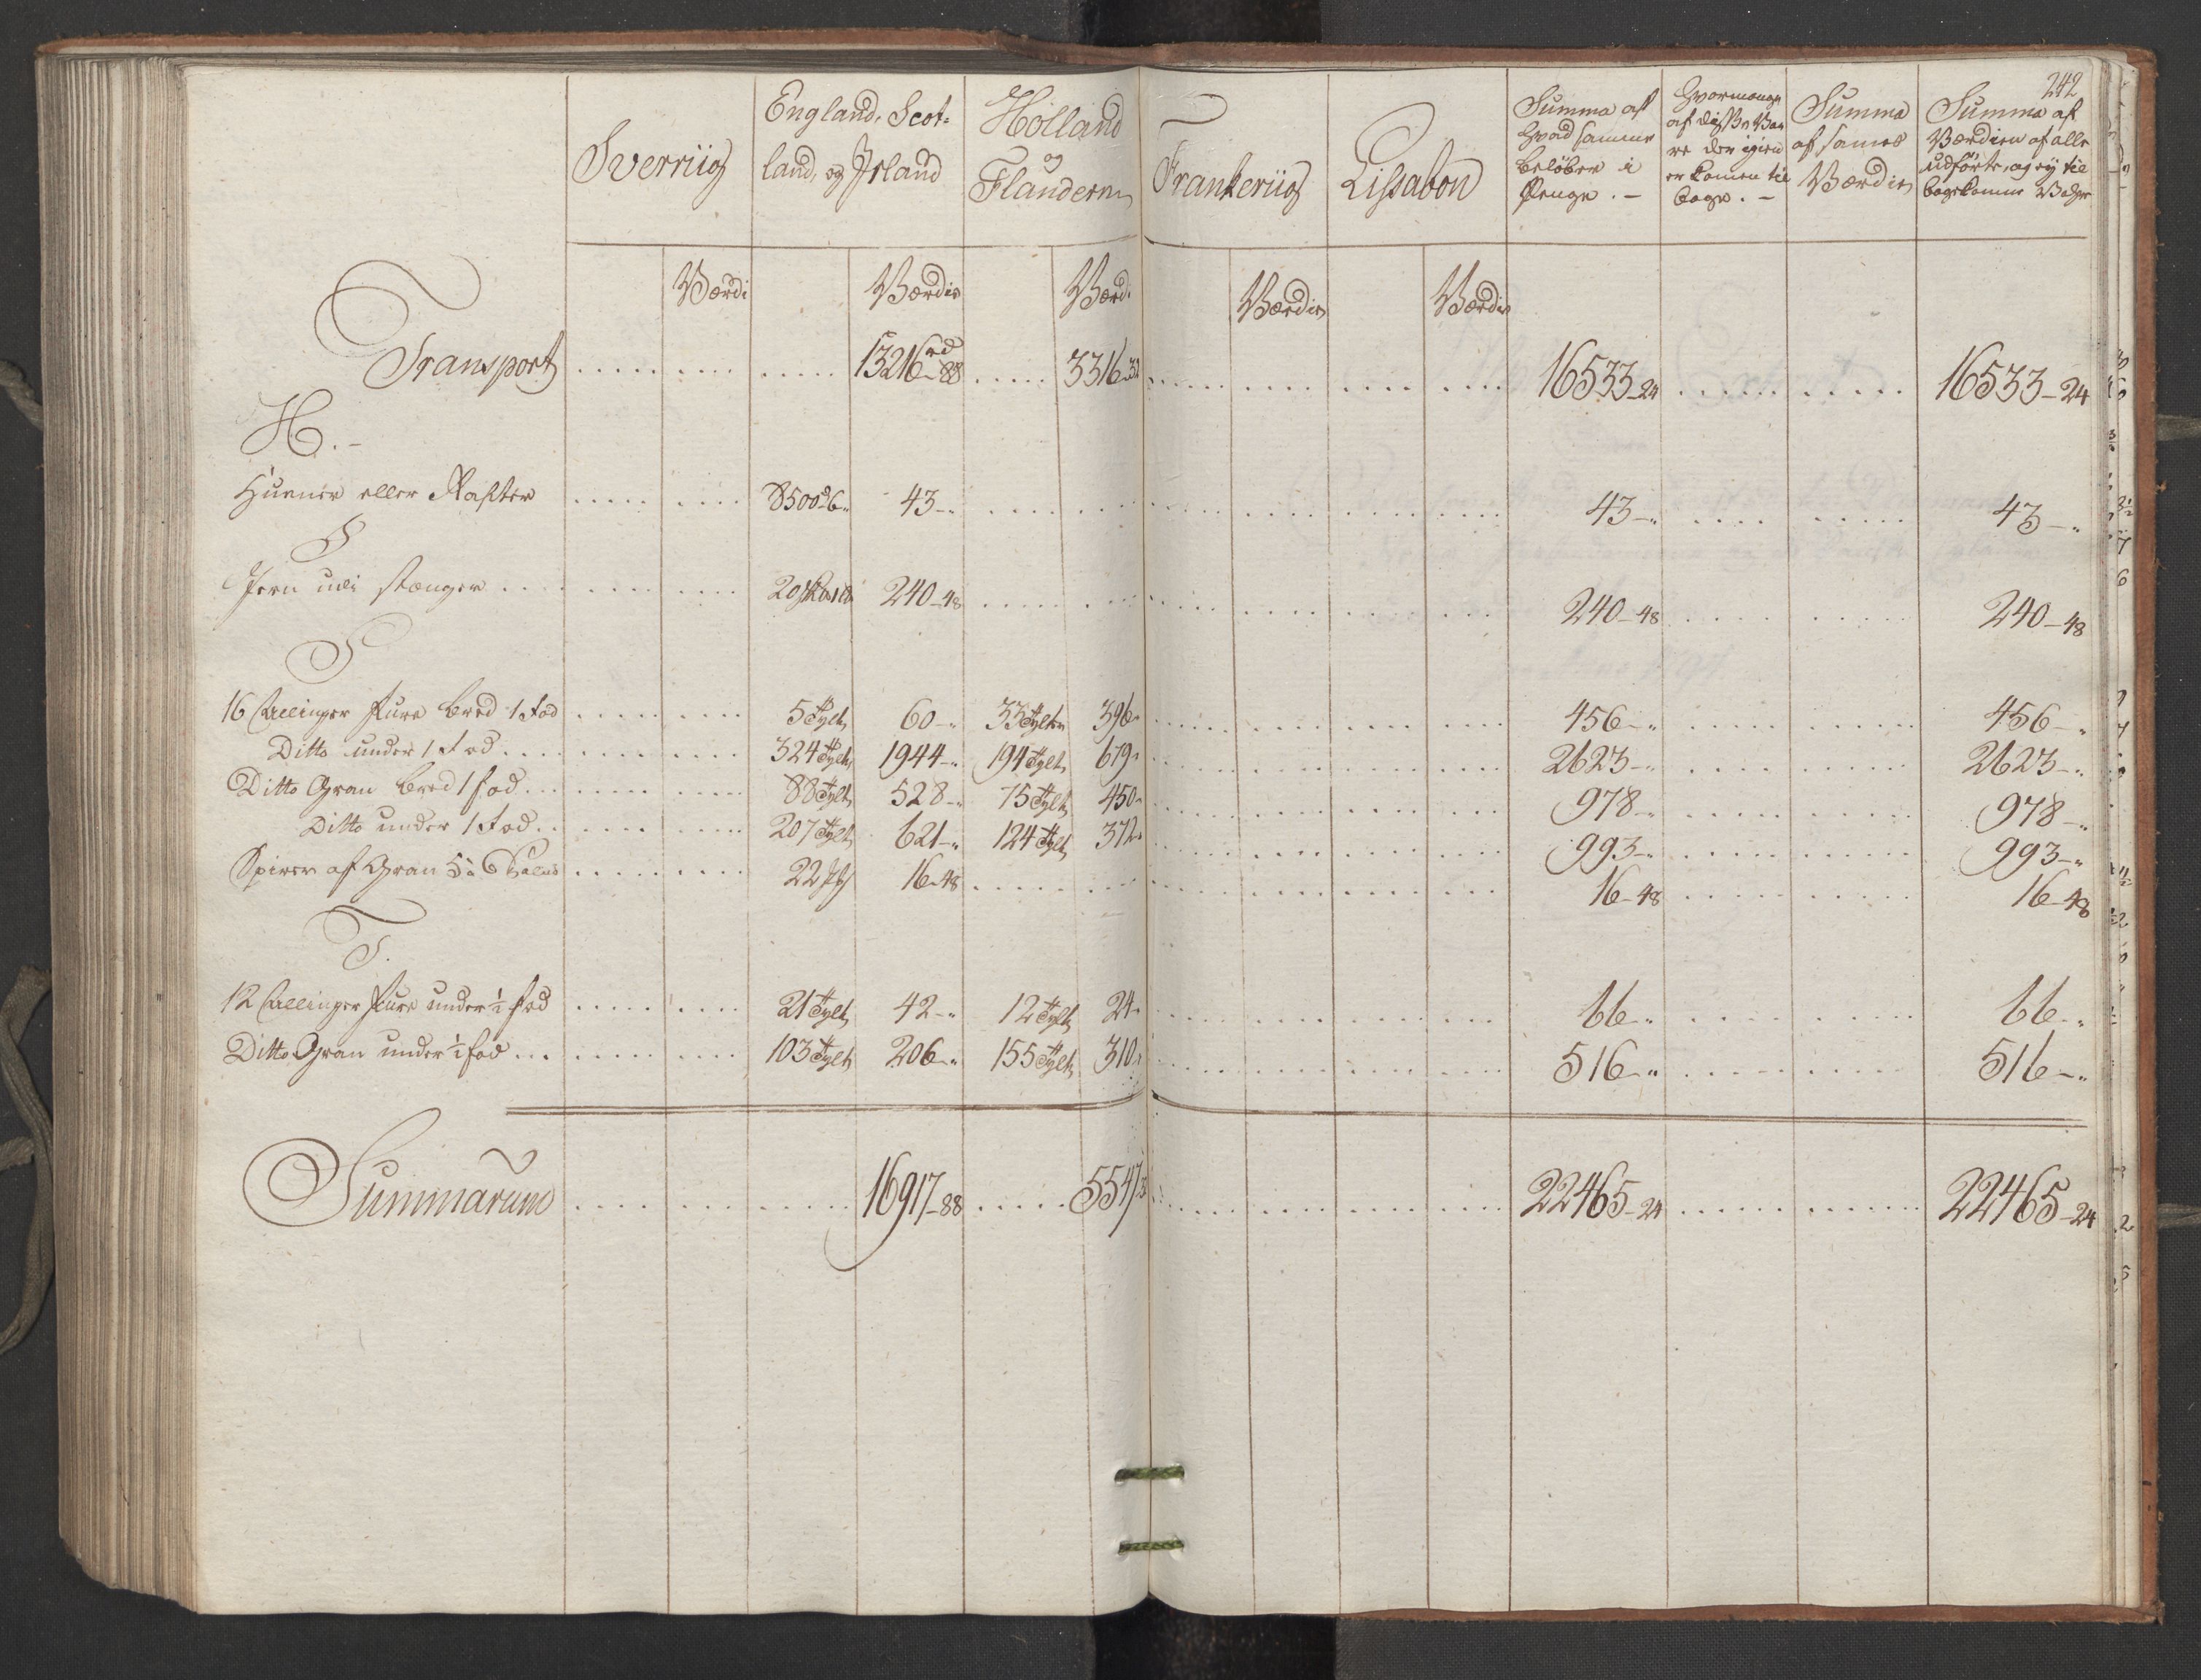 242
Sverriig England, Scot= Holland Frankeriig Lissabon Summa af Hvormange Summa Summa af
land, og Irland og Hvad samme af disse Va af sammes Værdien af alle
Flandern beløber i re der igien Værdie udførte, og ej til
Penge . – er komen til bagekomne Vahre
bage . –
Værdi Værdie Værd. Værdie Værdie
Transport 13216 rd 88 3316 32 16533 – 24 16533 – 24
H. –
Huuner eller Rafter 8500 43 – „ 43 – „ 43 – „
J
Jern udi stænger 240 – 48 240 – 48 240 – 48
S
16 Allinger Fure bred 1 Fod 5 Tylt 60 – „ 33 Tylt 396 „ 456 – „ 456 – „
Ditto under 1 Fod 324 Tylt 1944 – „ 194 Tylt 679 „ 2623 – „ 2623 – „
Ditto Gran bred 1 fod 88 Tylt 528 – „ 75 Tylt 450 „ 978 – „ 978 – „
Ditto under 1 Fod 207 Tylt 621 – „ 124 Tylt 372 „ 993 – „ 993 – „
Spirer af Gran 5 à 6 Palms 22 16 – 48 16 – 48 16 – 48
T.
12 Allinger Fure under ½ fod 21 Tylt 42 – „ 12 Tylt 24 „ 66 – „ 66 – „
Ditto Gran under ½ fod 103 Tylt 206 – „ 155 Tylt 310 „ 516 – „ 516 – „
Summarum 16917 – 88 5547 22465 – 24 22465 – 24